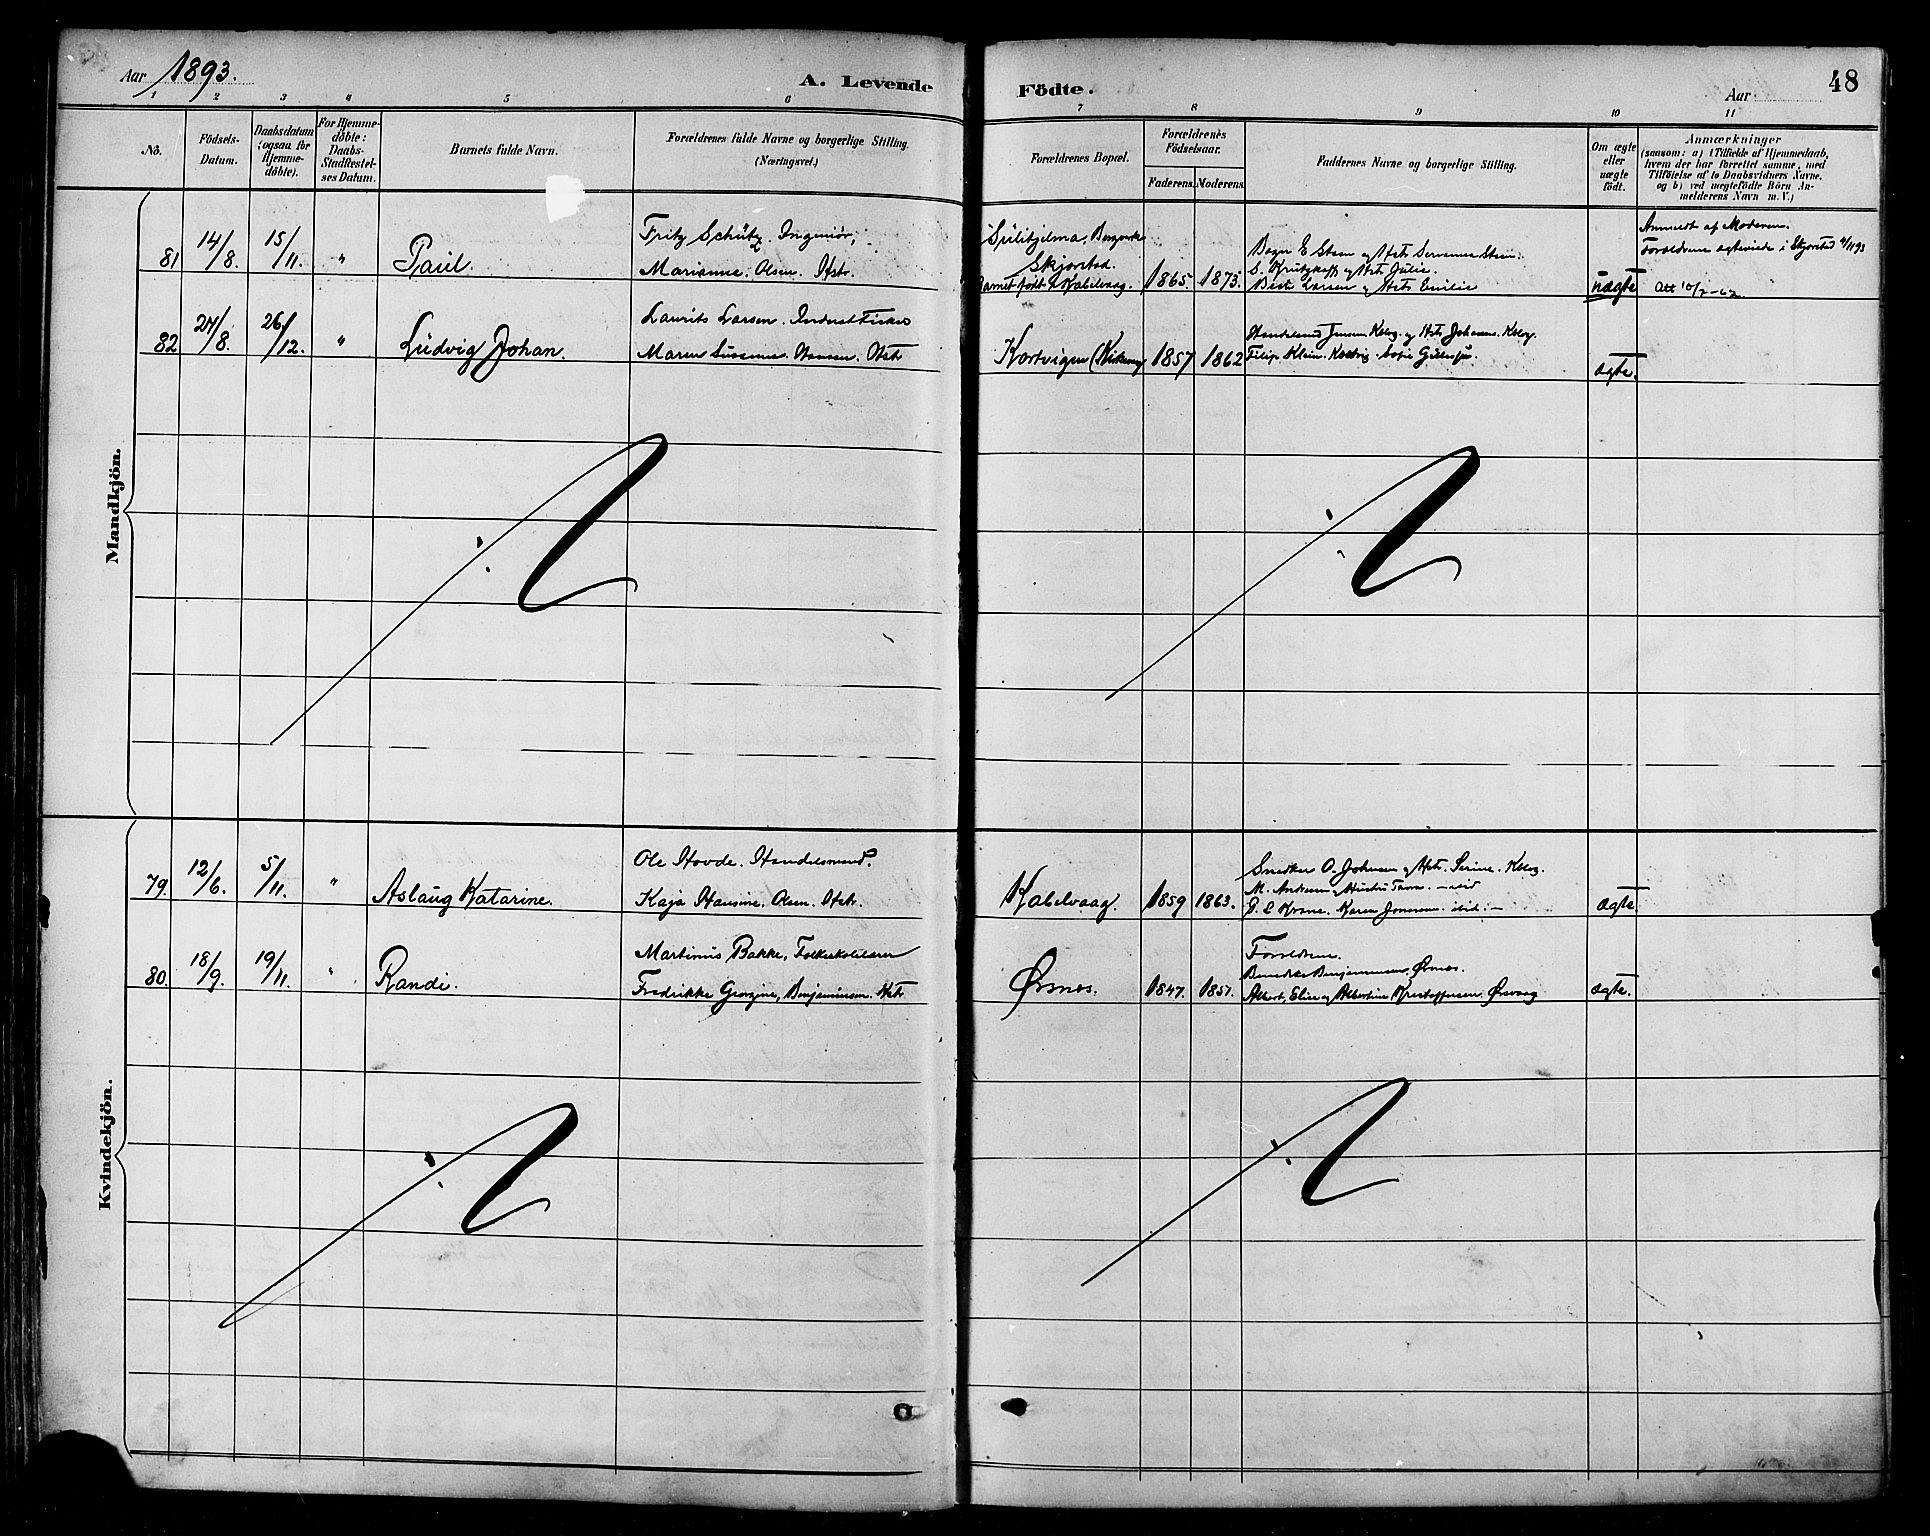 Aar 1893.
A. Levende
Födte.
Aar
48
1 2 3 4 5 6 7 8 9 10 11
No.
Födsels-
Datum.
Daabsdatum
(ogsaa for
Hjemme-
döbte).
For Hjemme-
döbte:
Daabs-
Stadfæstel-
ses Datum.
Barnets fulde Navn.
Forældrenes fulde Navne og borgerlige Stilling.
(Næringsvei.)
Forældrenes Bopæl.
Forældrenes
Födselsaar.
Faderens. Moderens.
Faddernes Navne og borgerlige Stilling.
Om ægte
eller
uægte
födt.
Anmærkninger
(saasom: a) i Tilfælde af Hjemmedaab,
hvem der har forrettet samme, med
Tilföielse af to Daabsvidners Navne,
og b) ved uægtefödte Börn An-
melderens Navn m. V.)
Mandkjön.
81 14/8. 15/11. " Paul.
Fritz Schütz. Ingeniör,
Marianne, Olsen. Hstr.
Sulitjelma, Bergverk
Skjerstad.
Barnet født i Kabelvaag.
1865. 1873.
Steen og Hstr
og Hstr Julie.
Larsen og Hstr Emilie
uægte
Anmeldt af Moderen.
Forældrene ægteviede i Skjerstad
82 27/8. 26/12. " Ludvig Johan.
Laurits Larsen. Fisker
Maren Susanna Hansen. Hstr
(Kirkevaag
1857 1862
Jensen. Kblvg. og Hstr Johanna. Kblvg.
Filip Klein.
ægte.
Kvindekjön.
79. 12/6. 5/11. " Aslaug Katarine.
Ole Hovde. Handelsmand.
Kaja Hansine, Olsen. Hstr.
Kabelvaag. 1859 1863.
Snedker O. Johnsen og Hstr. Serine. Kblvg.
M. Andersen og Hustru
Krane. Karen ibid.
ægte.
80. 18/9. 19/11. " Randi.
Martinus Bakke, Folkeskolelærer
Fredrikke Georgine, Benjaminsen. Hstr
Ørsnes. 1847. 1857.
Forældrene.
Benjaminsen Ørsnes.
Albert, Elise og Albertine Kristoffersen. Ørsvaag
ægte.